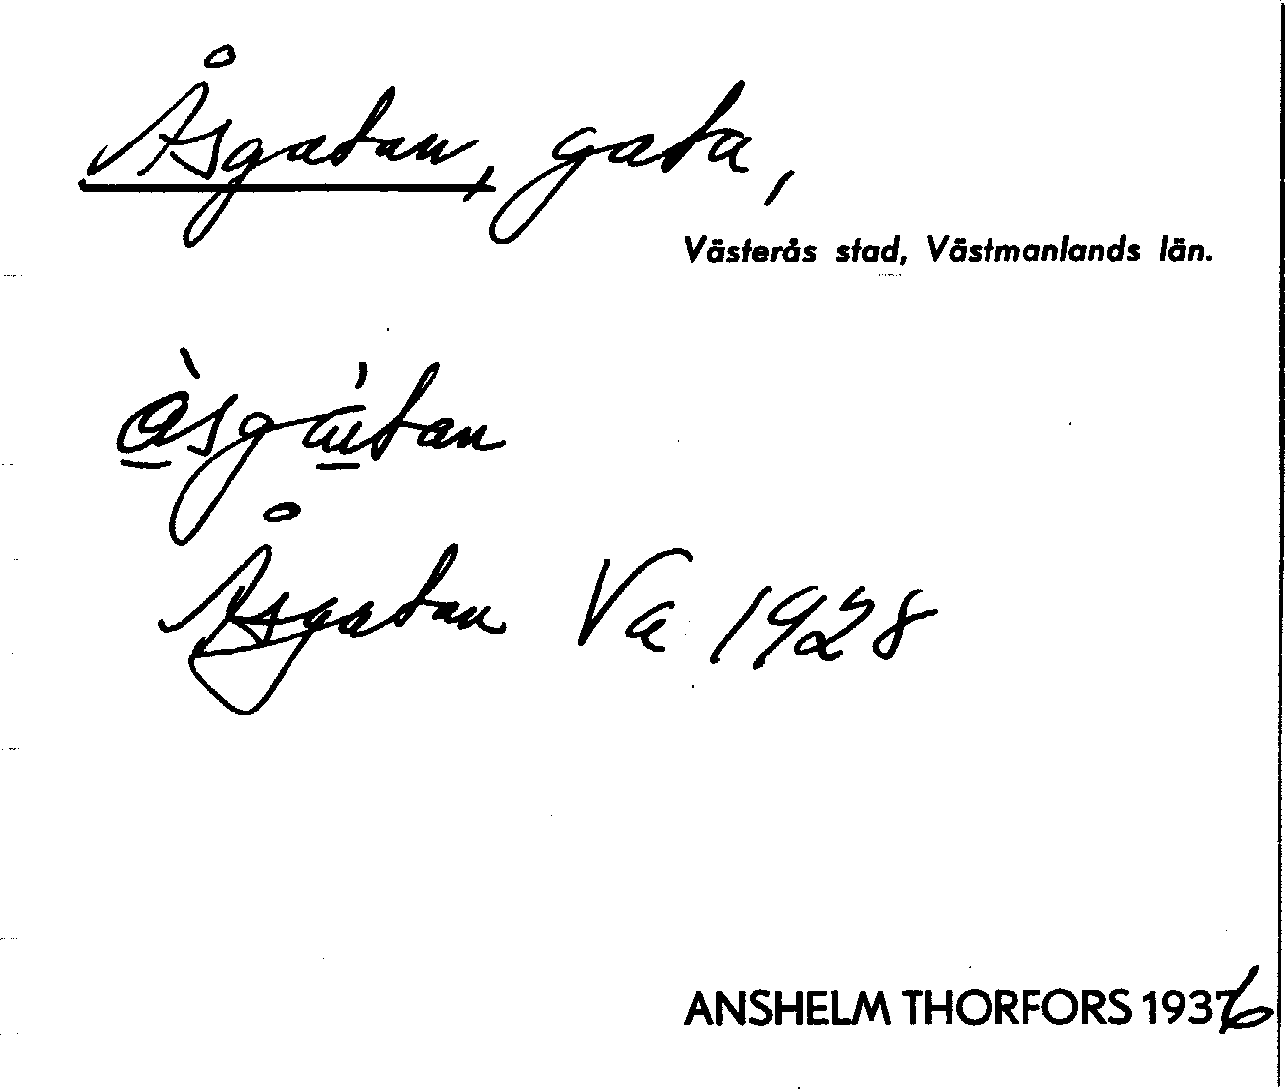 Åsgatan, gata,
Västerås stad, Västmanlands län.
åsgatan
Åsgatan Va 1928
ANSHELM THORFORS 1936